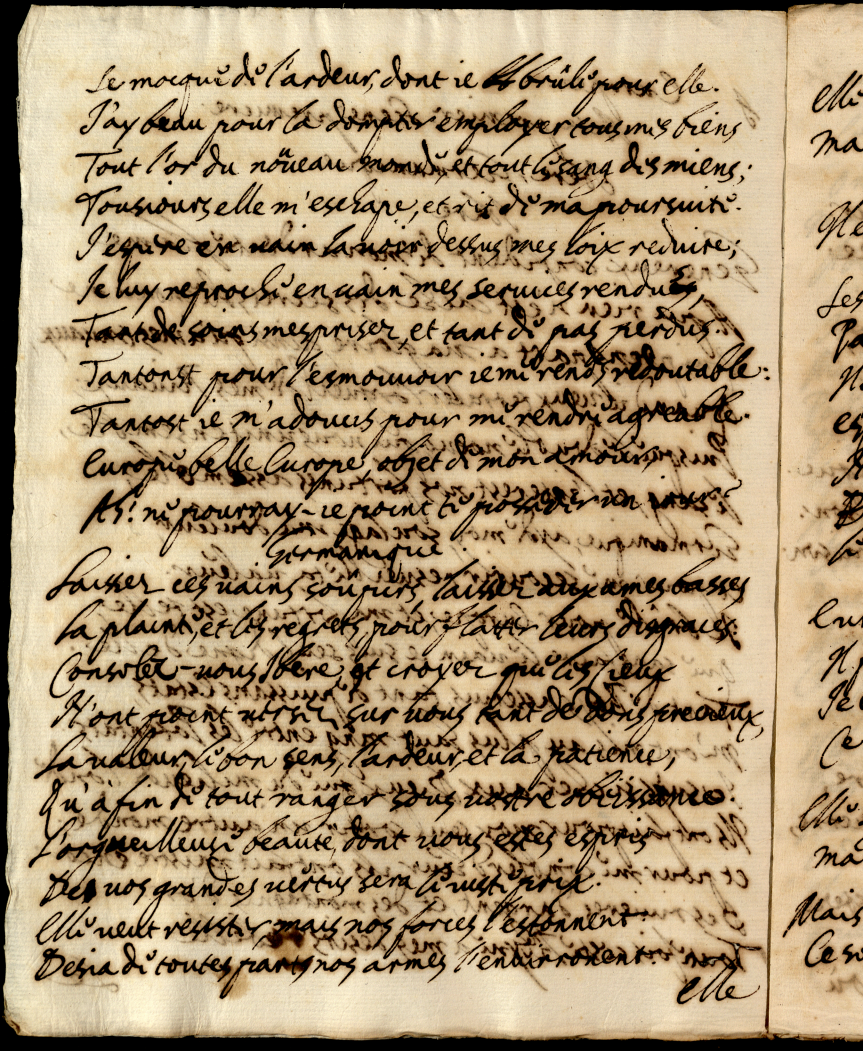 Se mocque de l'ardeur, dont ie brûle pour elle.
J'ay beau pour la dompter employer tous mes biens
Tout l'or du nouueau monde, et tout le sang des miens;
Tousiours elle m'eschape, et rit de ma poursuite.
J'espere en vain la voir dessus mes loix reduite;
Je luy reproche en uain mes seruices rendus,
Tant de soins mesprisez, et tant de pas perdus.
Tantost pour l'esmouuoir ie me rends redoutable:
Tantost ie m'adoucis pour me rendre agreable.
Europe, belle Europe, objet de mon amour,
Ah! ne pourray-ie point te posseder un iour?
Germanique.
Laissez ces uains soupirs, laissez aux ames basses
La plainte, et les regrets, pour flatter leurs disgraces.
Consolez-uous Ibere, et croyez que les Cieux
N'ont point uersé sur uous tant de dons precieux,
La ualeur, le bon sens, l'ardeur, et la patience,
Qu'afin de tout ranger sous uostre obeissance.
L'orgueilleuse beauté, dont uous estes espris
De uos grandes uertus sera le iuste prix.
Elle ueut resister, mais nos forces l'estonnent:
Desia de toutes parts nos armes l'enuironnent.
elle
elle
ma